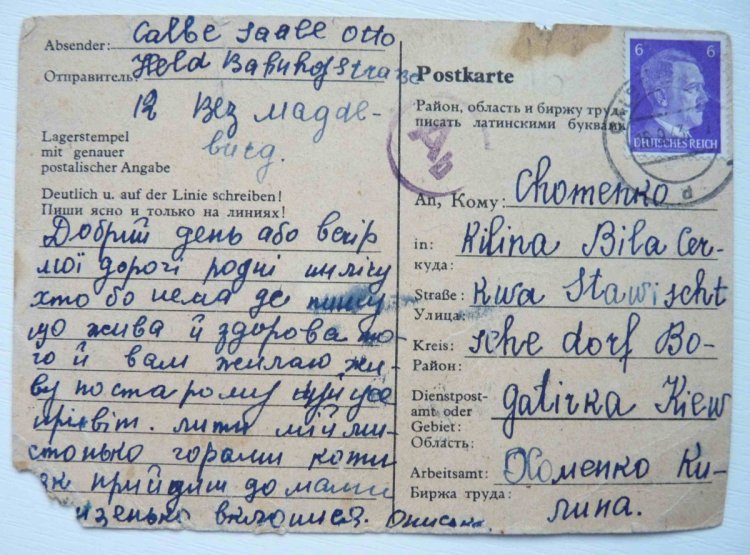 Absender: Calbe Saale Otto
Отправитель: Held Bahnhofstraße
12 Bez Magde-
burg.
Lagerstempel
mit genauer
postalischer Angabe
Deutlich u. auf der Linie schreiben!
Пиши ясно и только на линиях!
Добрий день або вечір
мої дорогі родні
хто бо нема де пишу
що жива й здорова то-
го й вам желаю жи-
ву по старому
привіт. лити мій ли-
стонько горами коти
як прийдиш до мами
низенько вклонися.
Postkarte
Район, область и биржу труда
писать латинскими буквами
Ab
6 6
DEUTSCHES REICH
An, Кому: Chomenko
in: Kilina Bila Cer-
куда:
Straße: kwa Stawischt
Улица:
Kreis: sche dorf Bo-
Район:
Dienstpost-
amt oder gatirka Kiew
Gebiet:
Область:
Arbeitsamt: Хоменко Ки-
Биржа труда: лина.